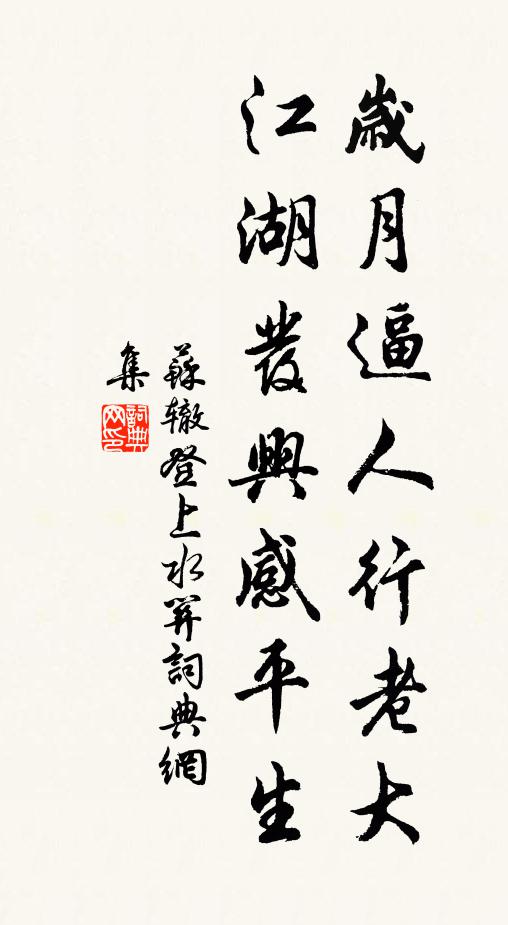 歲月逼人行老大
江湖發興感平生
蘇轍登上水關詞典網
集
詞典
网印